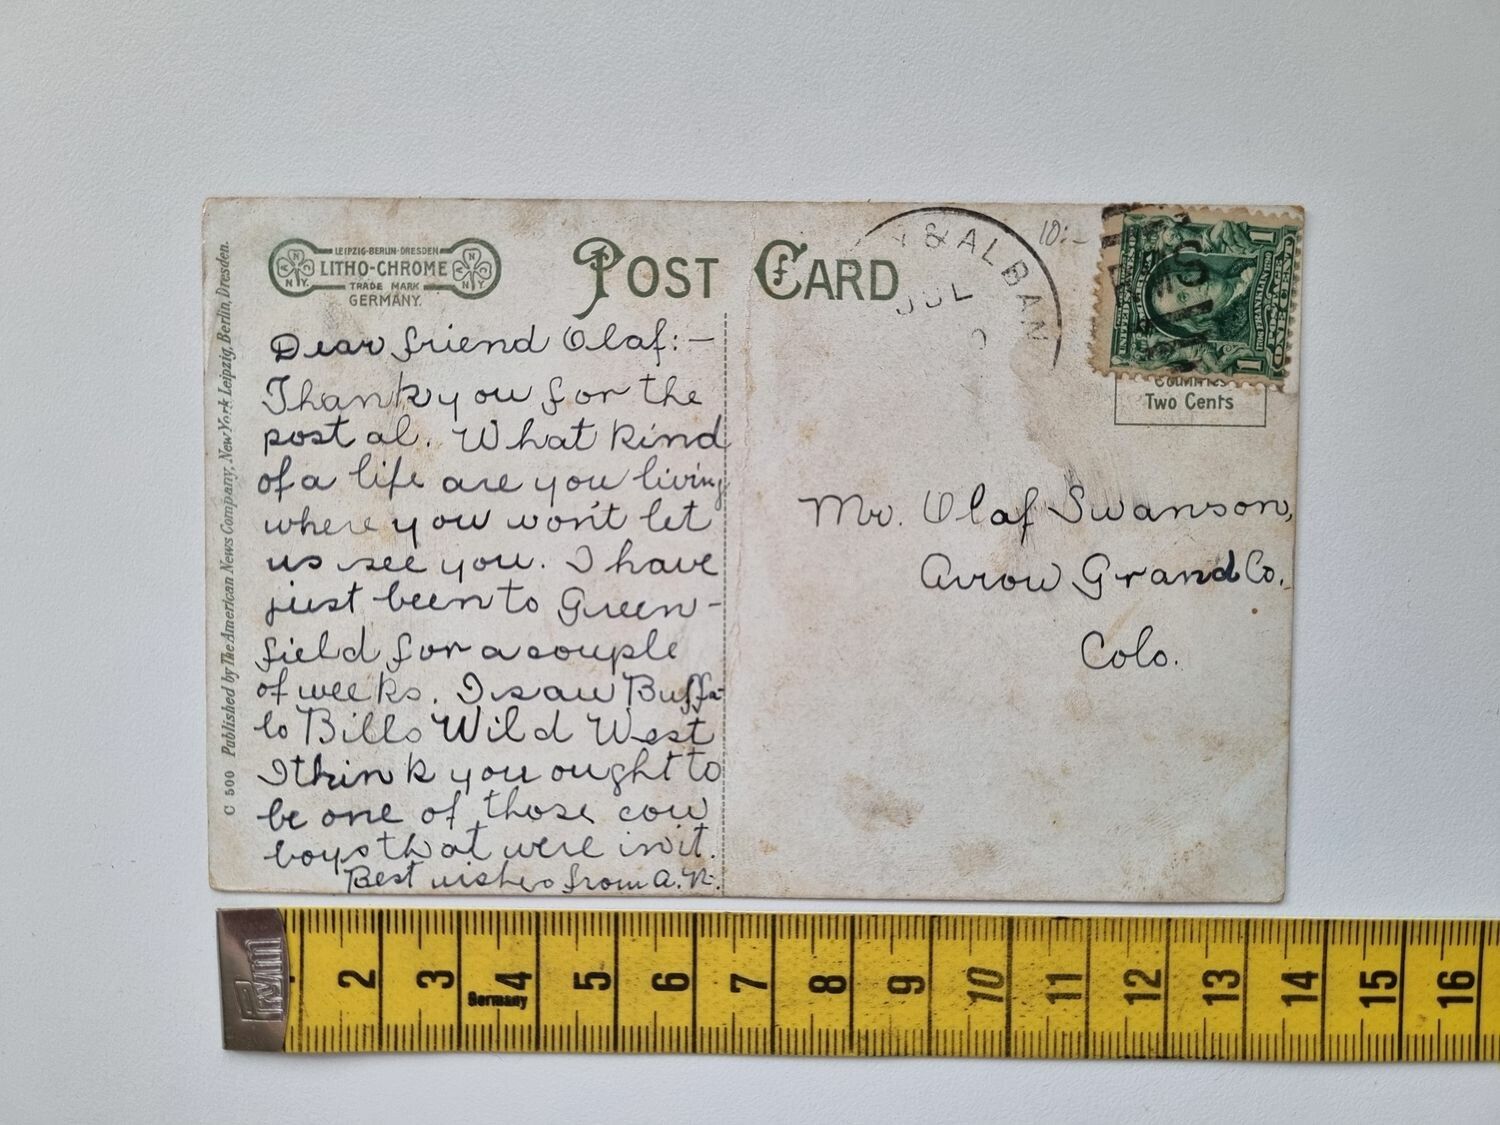 LEIPZIG-BERLIN-DRESDEN
LITHO-CHROME
TRADE MARK
GERMANY.
POST CARD
Y & ALBAN
JUL
10:-
UNITED STATES
1
1
POSTAGE
ONE CENT
Countries
Two Cents
C 500 Published by The American News Company, New York Leipzig, Berlin, Dresden.
Dear friend Olaf:—
Thank you for the
postal. What kind
of a life are you living
where you won't let
us see you. I have
just been to Green-
field for a couple
of weeks. I saw Buffa-
lo Bills Wild West
I think you ought to
be one of those cow
boys that were in it.
Best wishes from A.N.
Mr. Olaf Swanson,
Arrow Grand Co.,
Colo.
Prym
Germany
2 3 4 5 6 7 8 9 10 11 12 13 14 15 16